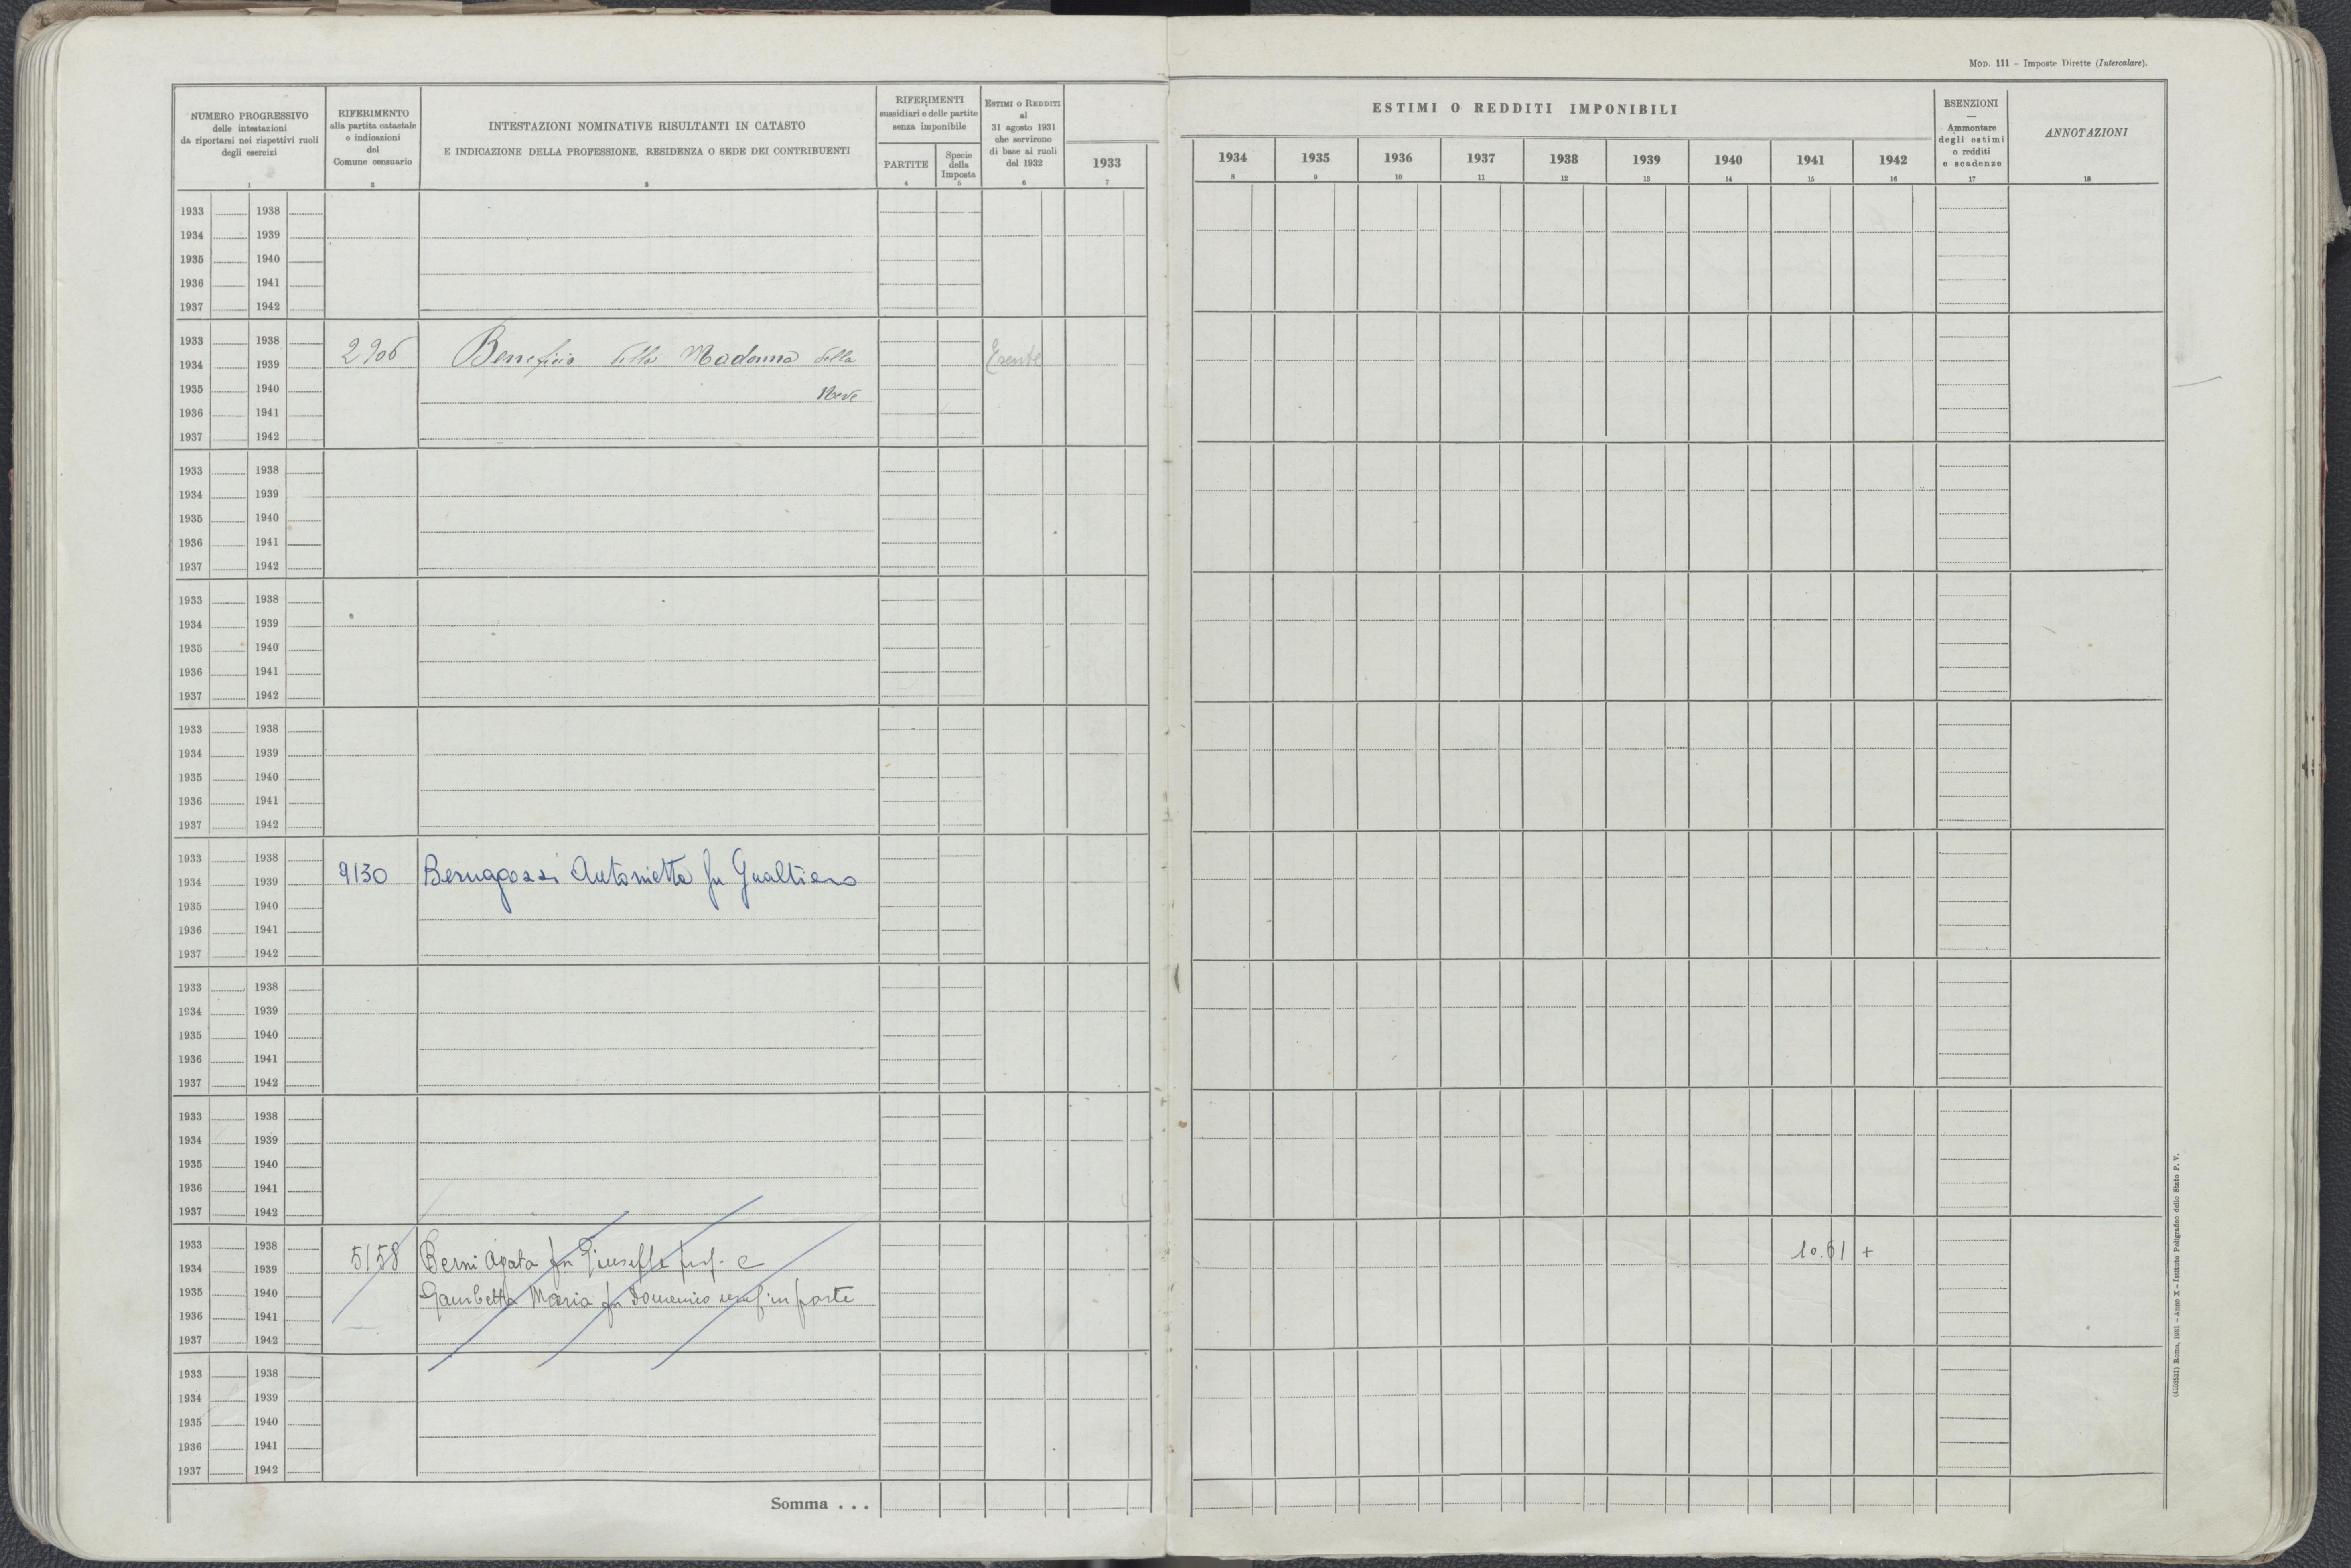 MOD. 111 – Imposte Dirette (Intercalare).
NUMERO PROGRESSIVO
delle intestazioni
da riportarsi nei rispettivi ruoli
degli esercizi
1
RIFERIMENTO
alla partita catastale
e indicazioni
del
Comune censuario
2
INTESTAZIONI NOMINATIVE RISULTANTI IN CATASTO
E INDICAZIONE DELLA PROFESSIONE, RESIDENZA O SEDE DEI CONTRIBUENTI
3
RIFERIMENTI
sussidiari e delle partite
senza imponibile
PARTITE
4
Specie
della
Imposta
5
ESTIMI O REDDITI
al
31 agosto 1931
che servirono
di base ai ruoli
del 1932
6
1933
7
ESTIMI O REDDITI IMPONIBILI
1934 1935 1936 1937 1938 1939 1940 1941 1942
8 9 10 11 12 13 14 15 16
ESENZIONI
—
Ammontare
degli estimi
o redditi
e scadenze
17
ANNOTAZIONI
18
1933 1938
1934 1939
1935 1940
1936 1941
1937 1942
1933 1938
2906 Beneficio della Madonna della Esente
1934 1939
1935 1940
Neve
1936 1941
1937 1942
1933 1938
1934 1939
1935 1940
1936 1941
1937 1942
1933 1938
1934 1939
1935 1940
1936 1941
1937 1942
1933 1938
1934 1939
1935 1940
1936 1941
1937 1942
1933 1938
9130 Bernagozzi Antonietta fu Gualtiero
1934 1939
1935 1940
1936 1941
1937 1942
1933 1938
1934 1939
1935 1940
1936 1941
1937 1942
1933 1938
1934 1939
1935 1940
1936 1941
1937 1942
1933 1938
5158 Berni Agata fu Giuseppe prop. e 10.61 +
1934 1939
1935 1940
Gambetta Maria fu Domenico usuf in parte
1936 1941
1937 1942
1933 1938
1934 1939
1935 1940
1936 1941
1937 1942
Somma . . .
(4103531) Roma, 1931 – Anno X – Istituto Poligrafico dello Stato P. V.